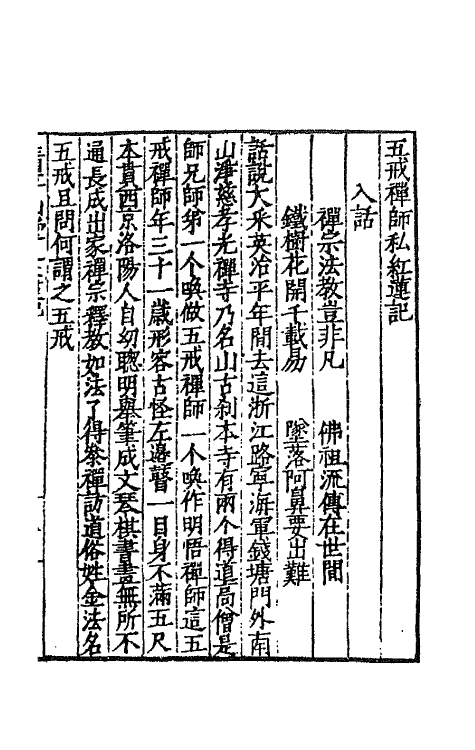 五戒禪師私紅蓮記
入話
禪宗法教豈非凡 佛祖流傳在世間
鐵樹花開千載易 墜落阿鼻要出難
話說大宋英治平年間去這浙江路寧海軍錢塘門外南
山淨慈孝光禪寺乃名山古刹本寺有兩个得道高僧是
師兄師弟一个喚做五戒禪師一个喚作明悟禪師這五
戒禪師年三十一歲形容古怪左邊瞽一目身不滿五尺
本貫西京洛陽人自幼聰明舉筆成文琴棋書畫無所不
通長成出家禪宗釋教如法了得參禪訪道俗姓金法名
五戒且問何謂之五戒